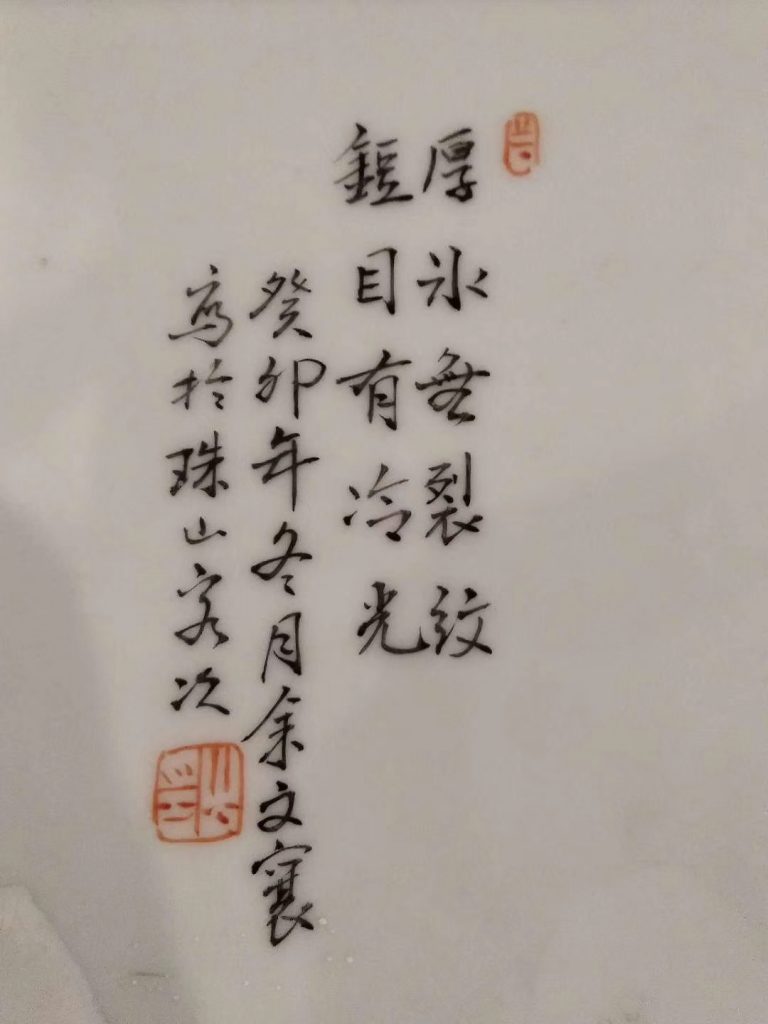 厚冰無裂紋
目有冷光
癸卯年冬月余文襄
寫於珠山客次